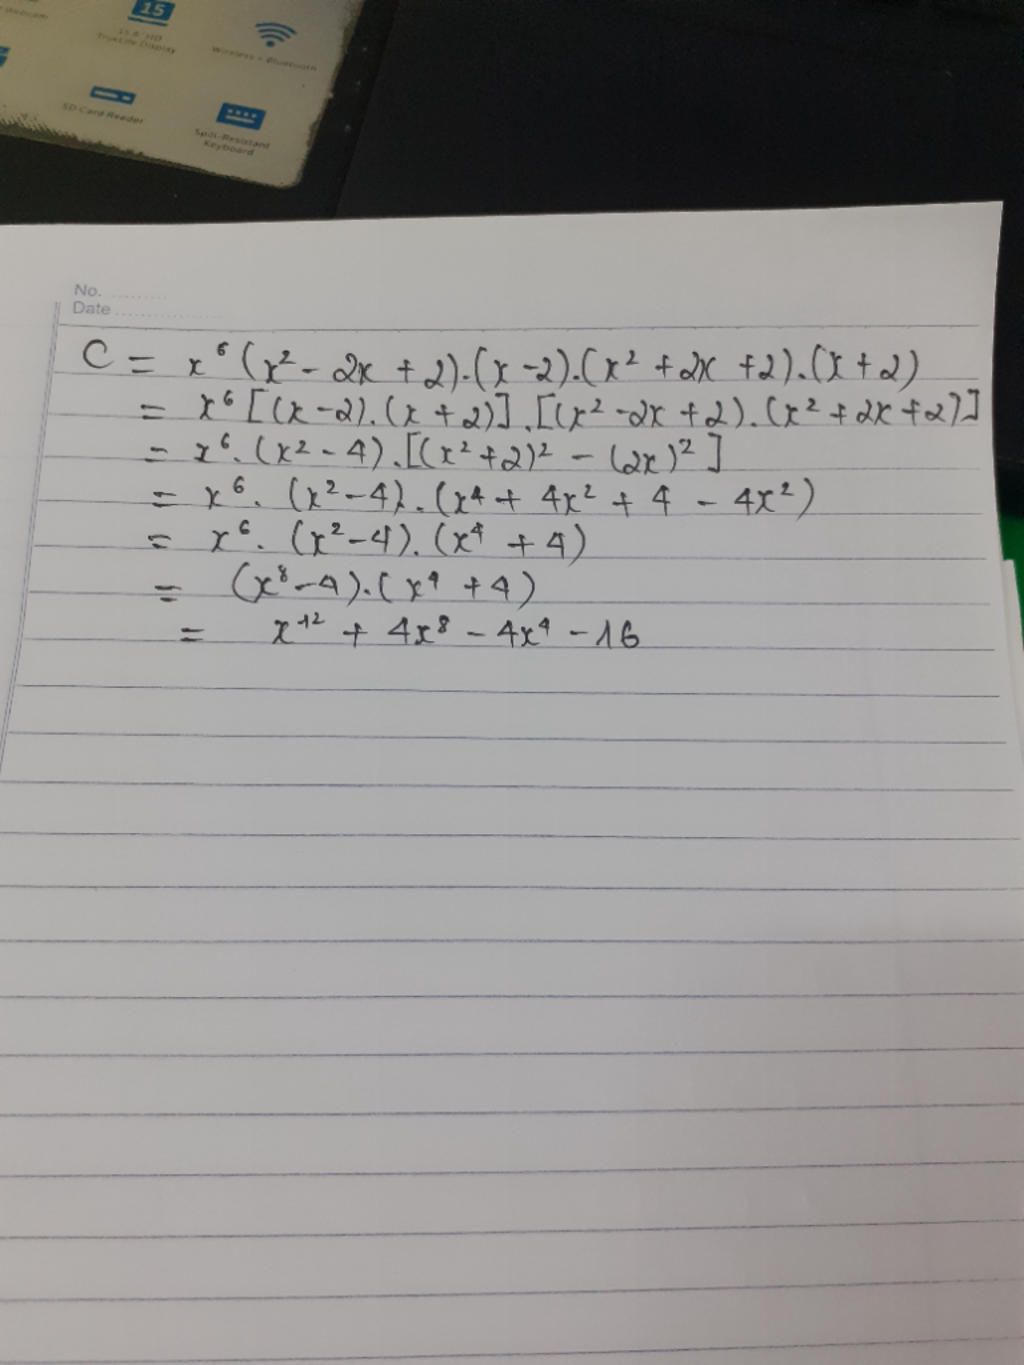 15
15.6" HD
TrueLife Display
Wireless + Bluetooth
SD Card Reader
Spill-Resistant
Keyboard
No. ..........
Date ..................
C = x⁶(x² - 2x + 2).(x - 2).(x² + 2x + 2).(x + 2)
= x⁶[(x - 2).(x + 2)].[(x² - 2x + 2).(x² + 2x + 2)]
= x⁶.(x² - 4).[(x² + 2)² - (2x)²]
= x⁶.(x² - 4).(x⁴ + 4x² + 4 - 4x²)
= x⁶.(x² - 4).(x⁴ + 4)
= (x⁸ - 4).(x⁴ + 4)
= x¹² + 4x⁸ - 4x⁴ - 16